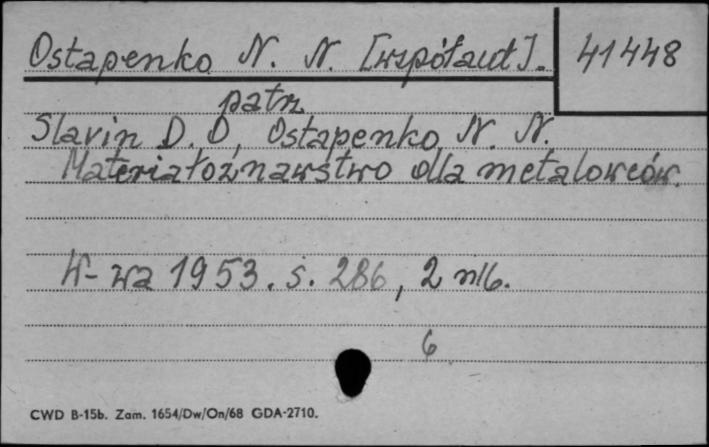 Ostapenko N. N. [współaut]. 41448
patrz
Slavin D. D, Ostapenko N. N.
Materiałoznawstwo dla metalowców.
W-wa 1953. s. 286, 2 nlb.
6
CWD B-15b. Zam. 1654/Dw/On/68 GDA-2710.